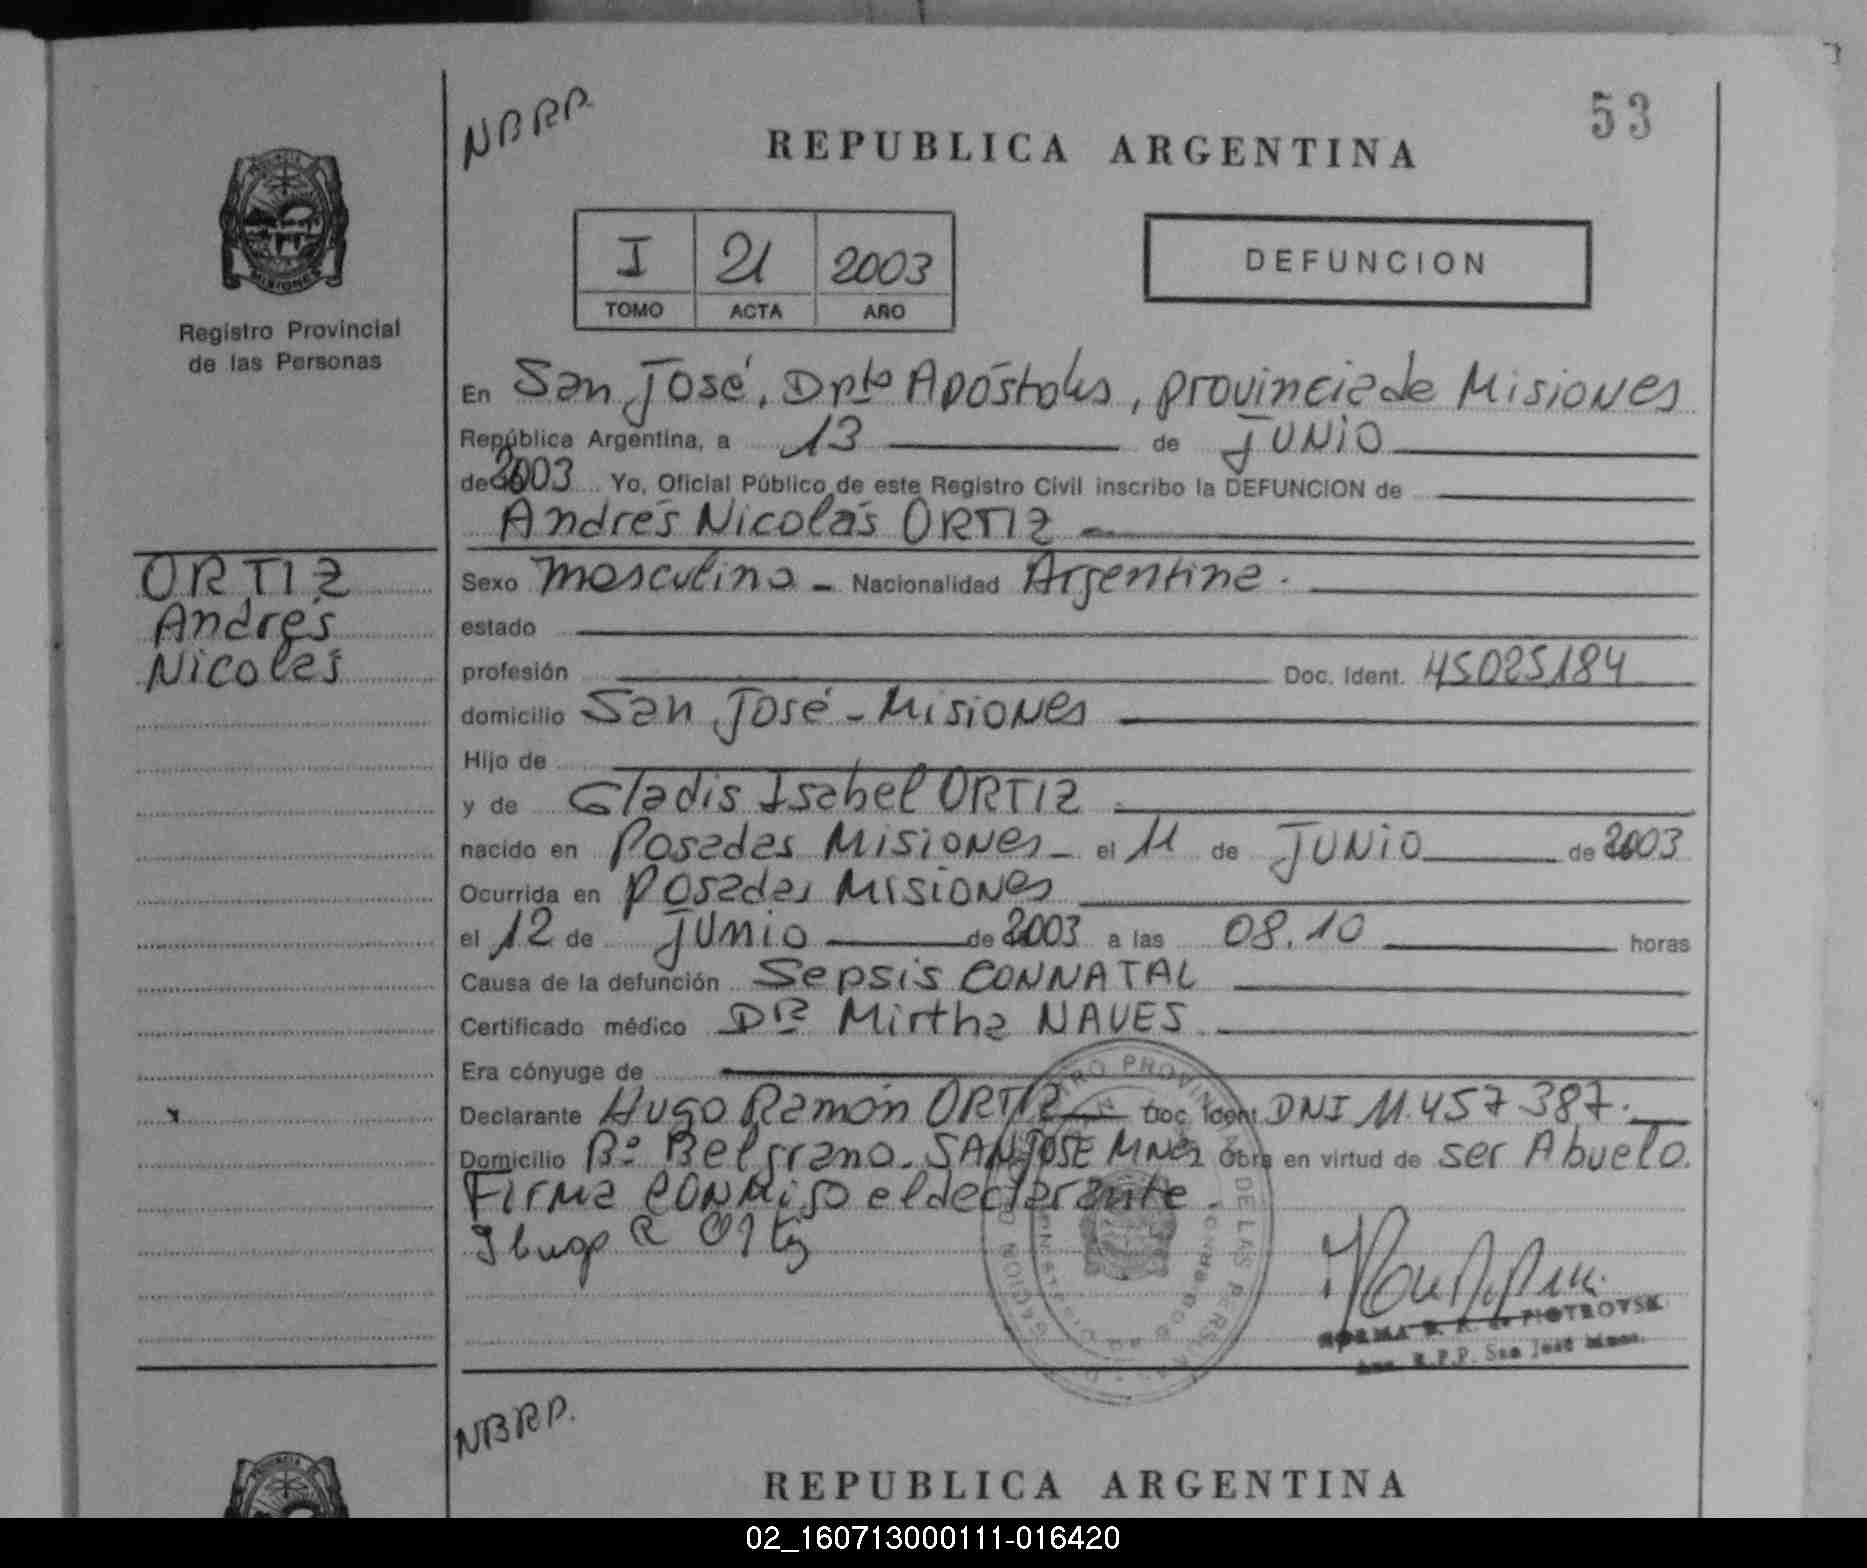 53
NBRP.
REPUBLICA ARGENTINA
I 21 2003
TOMO ACTA AÑO
DEFUNCION
PROVINCIA
MISIONES
Registro Provincial
de las Personas
En San José, Dpto Apóstoles, provincia de Misiones
República Argentina, a 13 de JUNIO
de 2003 Yo, Oficial Público de este Registro Civil inscribo la DEFUNCION de
Andrés Nicolás ORTIZ
ORTIZ
Andrés
Nicolás
Sexo masculino - Nacionalidad Argentina.
estado
profesión Doc. Ident. 45025184
domicilio San José - Misiones
Hijo de
y de Gladis Isabel ORTIZ
nacido en Posadas Misiones - el 11 de JUNIO de 2003
Ocurrida en Posadas Misiones
el 12 de JUNIO de 2003 a las 08.10 horas
Causa de la defunción Sepsis CONNATAL
Certificado médico Dra Mirtha NAVES
Era cónyuge de
Declarante Hugo Ramón ORTIZ Doc. Ident DNI 11.457387.
Domicilio Bº Belgrano - SAN JOSE MNES Obra en virtud de ser Abuelo.
Firma CONMigo el declarante
Hugo R Ortiz
NORMA de PIOTROVSKI
R.P.P. San José Mnes.
NBRP.
REPUBLICA ARGENTINA
02_160713000111-016420